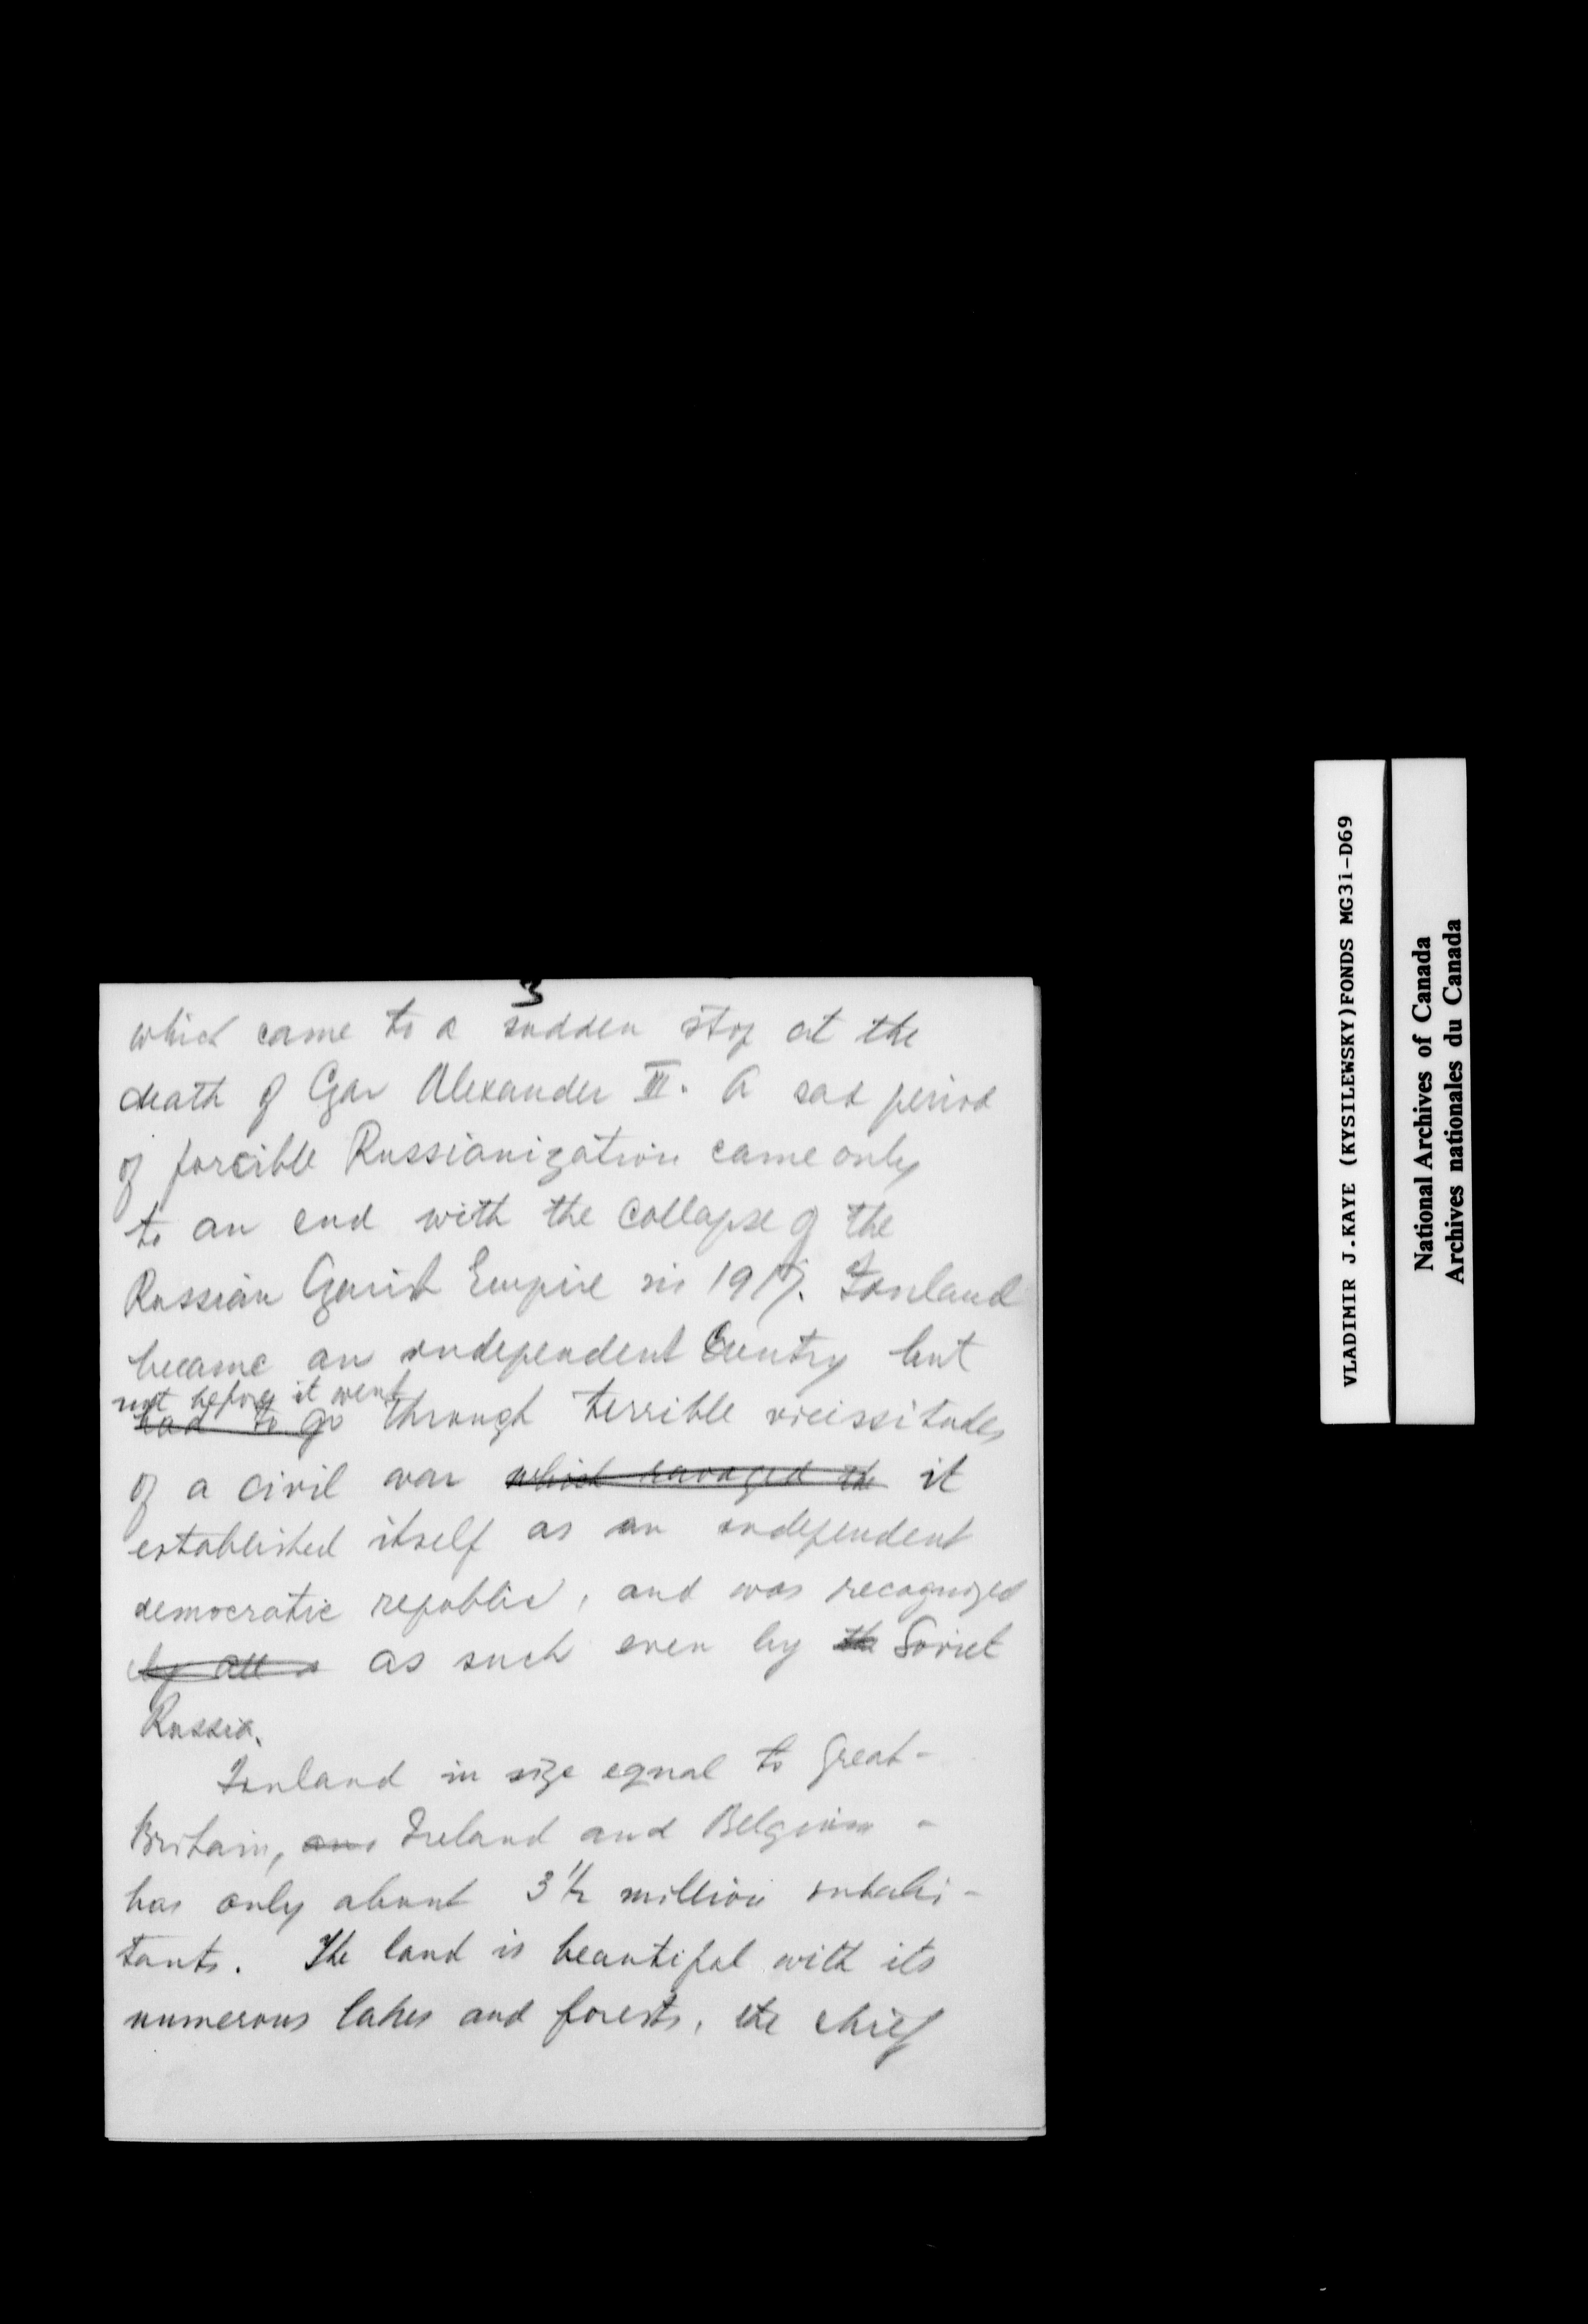 3
which came to a sudden stop at the
death of Czar Alexander III. A sad period
of forcible Russianization came only
to an end with the collapse of the
Russian Czarist Empire in 1917. Finland
became an independent Country but
not before it went
had to go through terrible vicissitudes
of a civil war which ravaged the it
established itself as an independent
democratic republic, and was recognized
by all as such even by the Soviet
Russia.
Finland in size equal to Great-
Britain, and Ireland and Belgium -
has only about 3 1/2 million inhabi-
tants. The land is beautiful with its
numerous lakes and forests, the chief
VLADIMIR J.KAYE (KYSILEWSKY)FONDS MG31-D69
National Archives of Canada
Archives nationales du Canada